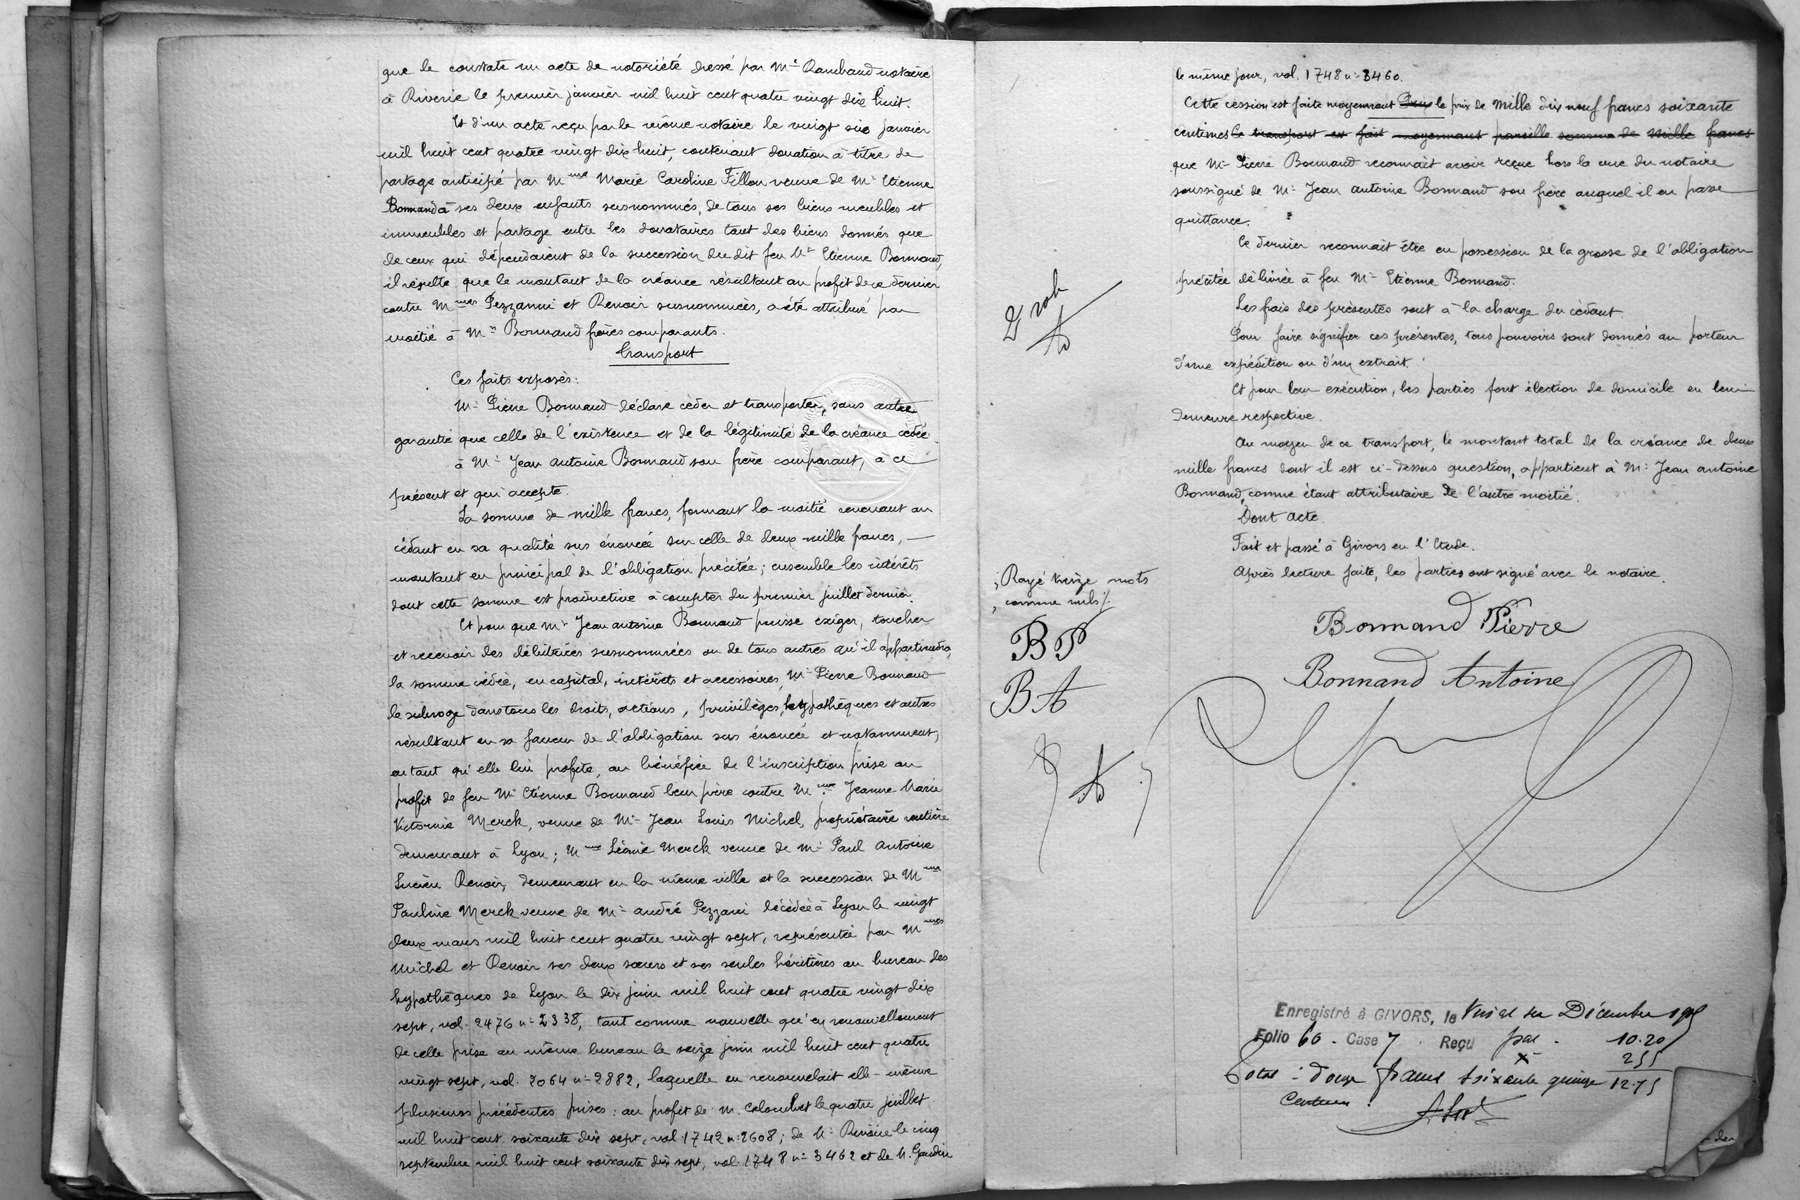 que le constate un acte de notoriété dressé par Me Rambaud notaire
à Riverie le premier janvier mil huit cent quatre vingt dix huit.
Et d'un acte reçu par le même notaire le vingt six janvier
mil huit cent quatre vingt dix huit, contenant donation à titre de
partage anticipé par Mme Marie Caroline Fillon veuve de Mr Etienne
Bonnand à ses deux enfants susnommés, de tous ses biens meubles et
immeubles et partage entre les donataires tant des biens donnés que
de ceux qui dépendaient de la succession du dit feu Mr Etienne Bonnand,
il résulte que le montant de la créance résultant au profit de ce dernier
contre Mmes Pezzanni et Renoir susnommées, a été attribué par
moitié à Mrs Bonnand frères comparants.
Transport
Ces faits exposés:
Mr Pierre Bonnand déclare céder et transporter, sans autre
garantie que celle de l'existence et de la légitimité de la créance cédée
à Mr Jean Antoine Bonnand son frère comparant, à ce
présent et qui accepte.
La somme de mille francs, formant la moitié revenant au
cédant en sa qualité sus énoncée sur celle de deux mille francs,
montant en principal de l'obligation précitée; ensemble les intérêts
dont cette somme est productive à compter du premier juillet dernier.
Et pour que Mr Jean antoine Bonnand puisse exiger, toucher
et recevoir des débitrices susnommées ou de tous autres qu'il appartiendra,
la somme cédée, en capital, intérêts et accessoires, Mr Pierre Bonnand
le subroge dans tous les droits, actions, privilèges, hypothèques et autres
résultant en sa faveur de l'obligation sus énoncée et notamment,
en tant qu'elle lui profite, au bénéfice de l'inscription prise au
profit de feu Mr Etienne Bonnand leur père contre Mme Jeanne Marie
Victorine Merck, veuve de Mr Jean Louis Michel, propriétaire rentière
demeurant à Lyon; Mme Léonie Merck veuve de Mr Paul Antoine
Lucien Renoir, demeurant en la même ville et la succession de Mme
Pauline Merck veuve de Mr andré Pezzani décédée à Lyon le vingt
deux mars mil huit cent quatre vingt sept, représentée par Mmes
Michel et Renoir ses deux sœurs et ses seules héritières au bureau des
hypothèques de Lyon le dix juin mil huit cent quatre vingt dix
sept, vol. 2476 n° 2338, tant comme nouvelle qu'en renouvellement
de celle prise au même bureau le seize juin mil huit cent quatre
vingt sept, vol. 2064 n° 2882, laquelle en renouvelait elle-même
plusieurs précédentes prises: au profit de M. Colombet le quatre juillet
mil huit cent soixante dix sept, vol. 1742 n° 2608; de Mr Revoire le cinq
septembre mil huit cent soixante dix sept, vol. 1748 n° 3462 et de M. Gaudin
le même jour, vol. 1748 n° 3460.
Cette cession est faite moyennant le prix de mille dix neuf francs soixante
centimes Ce transport est fait moyennant pareille somme de mille francs
que Mr Pierre Bonnand reconnaît avoir reçue hors la vue du notaire
soussigné de Mr Jean antoine Bonnand son frère auquel il en passe
quittance.
Ce dernier reconnait être en possession de la grosse de l'obligation
précitée délivrée à feu Mr Etienne Bonnand.
Les frais des présentes sont à la charge du cédant.
Pour faire signifier ces présentes, tous pouvoirs sont donnés au porteur
d'une expédition ou d'un extrait.
Et pour leur exécution, les parties font élection de domicile en leur
demeure respective.
Au moyen de ce transport, le montant total de la créance de deux
mille francs dont il est ci-dessus question, appartient à Mr Jean antoine
Bonnand, comme étant attributaire de l'autre moitié.
Dont acte.
Fait et passé à Givors en l'Etude.
Après lecture faite, les parties ont signé avec le notaire.
Rayé treize mots
comme nuls
BP
BA
Bonnand Pierre
Bonnand Antoine
Enregistré à GIVORS, le Décembre
Folio 60 - Case 7 Reçu 10.20
2.55
Total : douze francs soixante quinze 12.75
Centimes